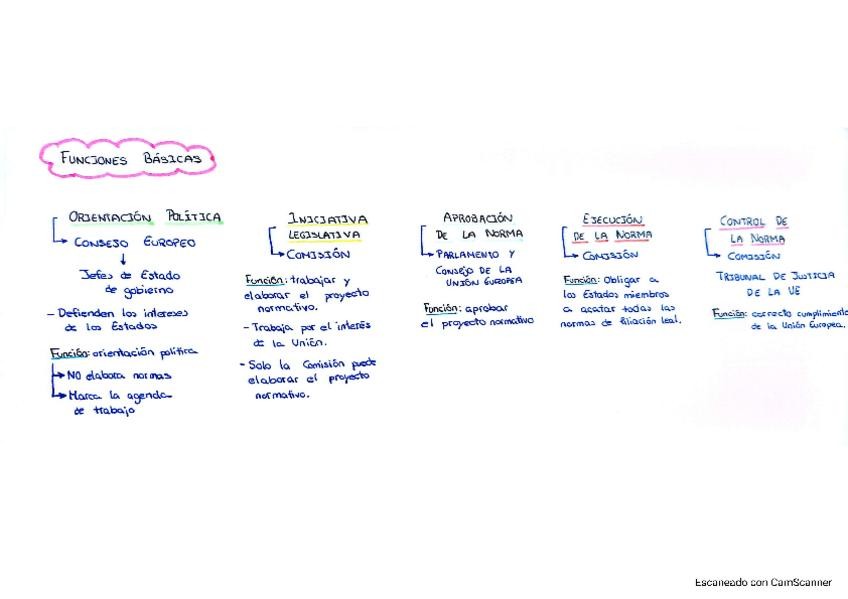 FUNCIONES BÁSICAS
ORIENTACIÓN POLÍTICA
CONSEJO EUROPEO
Jefes de Estado
de gobierno
- Defienden los intereses
de los Estados
Función: orientación política
NO elabora normas
Marca la agenda
de trabajo
INICIATIVA
LEGISLATIVA
COMISIÓN
Función: trabajar y
elaborar el proyecto
normativo.
- Trabaja por el interés
de la Unión.
- Solo la Comisión puede
elaborar el proyecto
normativo.
APROBACIÓN
DE LA NORMA
PARLAMENTO Y
CONSEJO DE LA
UNIÓN EUROPEA
Función: aprobar
el proyecto normativo
EJECUCIÓN
DE LA NORMA
COMISIÓN
Función: Obligar a
los Estados miembros
a acatar todas las
normas de filiación leal.
CONTROL DE
LA NORMA
COMISIÓN
TRIBUNAL DE JUSTICIA
DE LA UE
Función: correcto cumplimiento
de la Unión Europea.
Escaneado con CamScanner